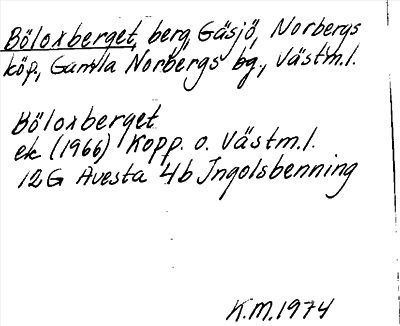 Böloxberget, berg, Gäsjö, Norbergs
köp., Gamla Norbergs bg., Västm.l.
Böloxberget
ek (1966) Kopp. o. Västm.l.
12G Avesta 4b Ingolsbenning
K.M. 1974